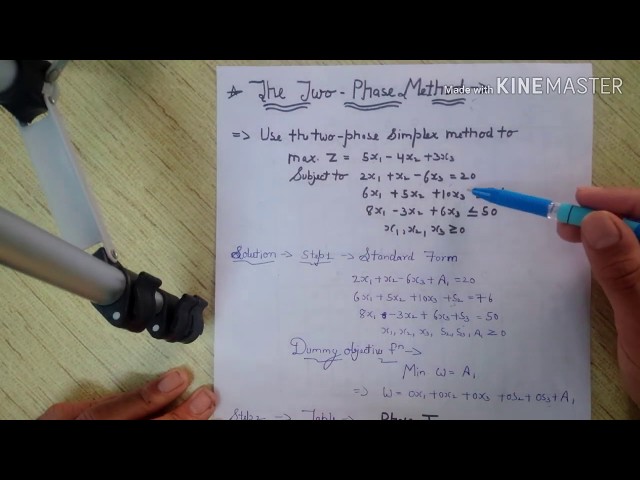 The Two-Phase Method →
Made with KINEMASTER
⇒ Use the two-phase simplex method to
max. Z = 5x₁ - 4x₂ + 3x₃
Subject to 2x₁ + x₂ - 6x₃ = 20
6x₁ + 5x₂ + 10x₃
8x₁ - 3x₂ + 6x₃ ≤ 50
x₁, x₂, x₃ ≥ 0
Solution → Step 1 → Standard Form
2x₁ + x₂ - 6x₃ + A₁ = 20
6x₁ + 5x₂ + 10x₃ + S₂ = 76
8x₁ - 3x₂ + 6x₃ + S₃ = 50
x₁, x₂, x₃, S₂, S₃, A₁ ≥ 0
Dummy objective fⁿ →
Min W = A₁
⇒ W = 0x₁ + 0x₂ + 0x₃ + 0S₂ + 0S₃ + A₁
Step 2 → Table → Phase I